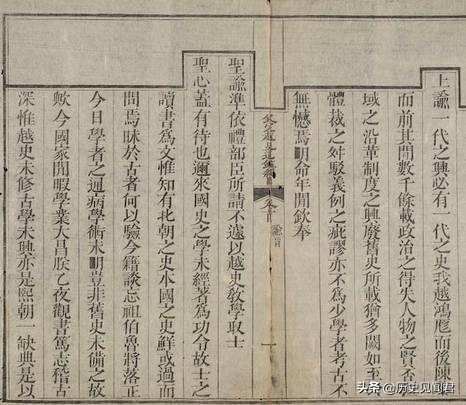 上諭一代之興必有一代之史我越鴻厖而後陳
而前其間數千餘載政治之得失人物之賢否
域之沿革制度之興廢舊史所載猶多闕如至
體裁之舛駁義例之疵謬亦不為少學者考古不
無憾焉明命年間欽奉
卷首
一
聖諭準依禮部臣所請不遽以越史教學取士
聖心蓋有待也邇來國史之學未經著為功令故士之
讀書為文惟知有北朝之史本國之史鮮或過而
問焉昧於古者何以驗今籍談忘祖伯魯將落正
今日學者之通病學術未明豈非舊史未備之故
歟今國家閒暇學業大昌朕乙夜觀書篤志稽古
深惟越史未修古學未興亦是熙朝一缺典是以
头条 @历史见闻君